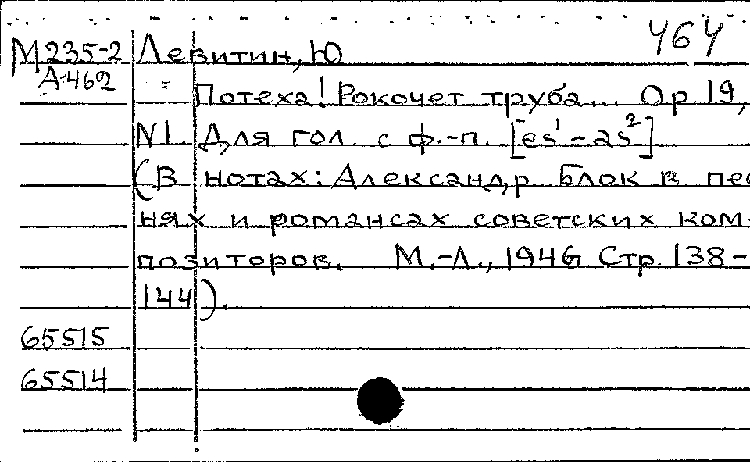 464
М235-2 Левитин, Ю
А462
Потеха! Рокочет труба... Ор 19,
N1. Для гол. с ф.-п. [es¹-as²]
(В нотах: Александр Блок в пес-
нях и романсах советских ком-
позиторов. М.-Л., 1946 Стр. 138-
144).
65515
65514